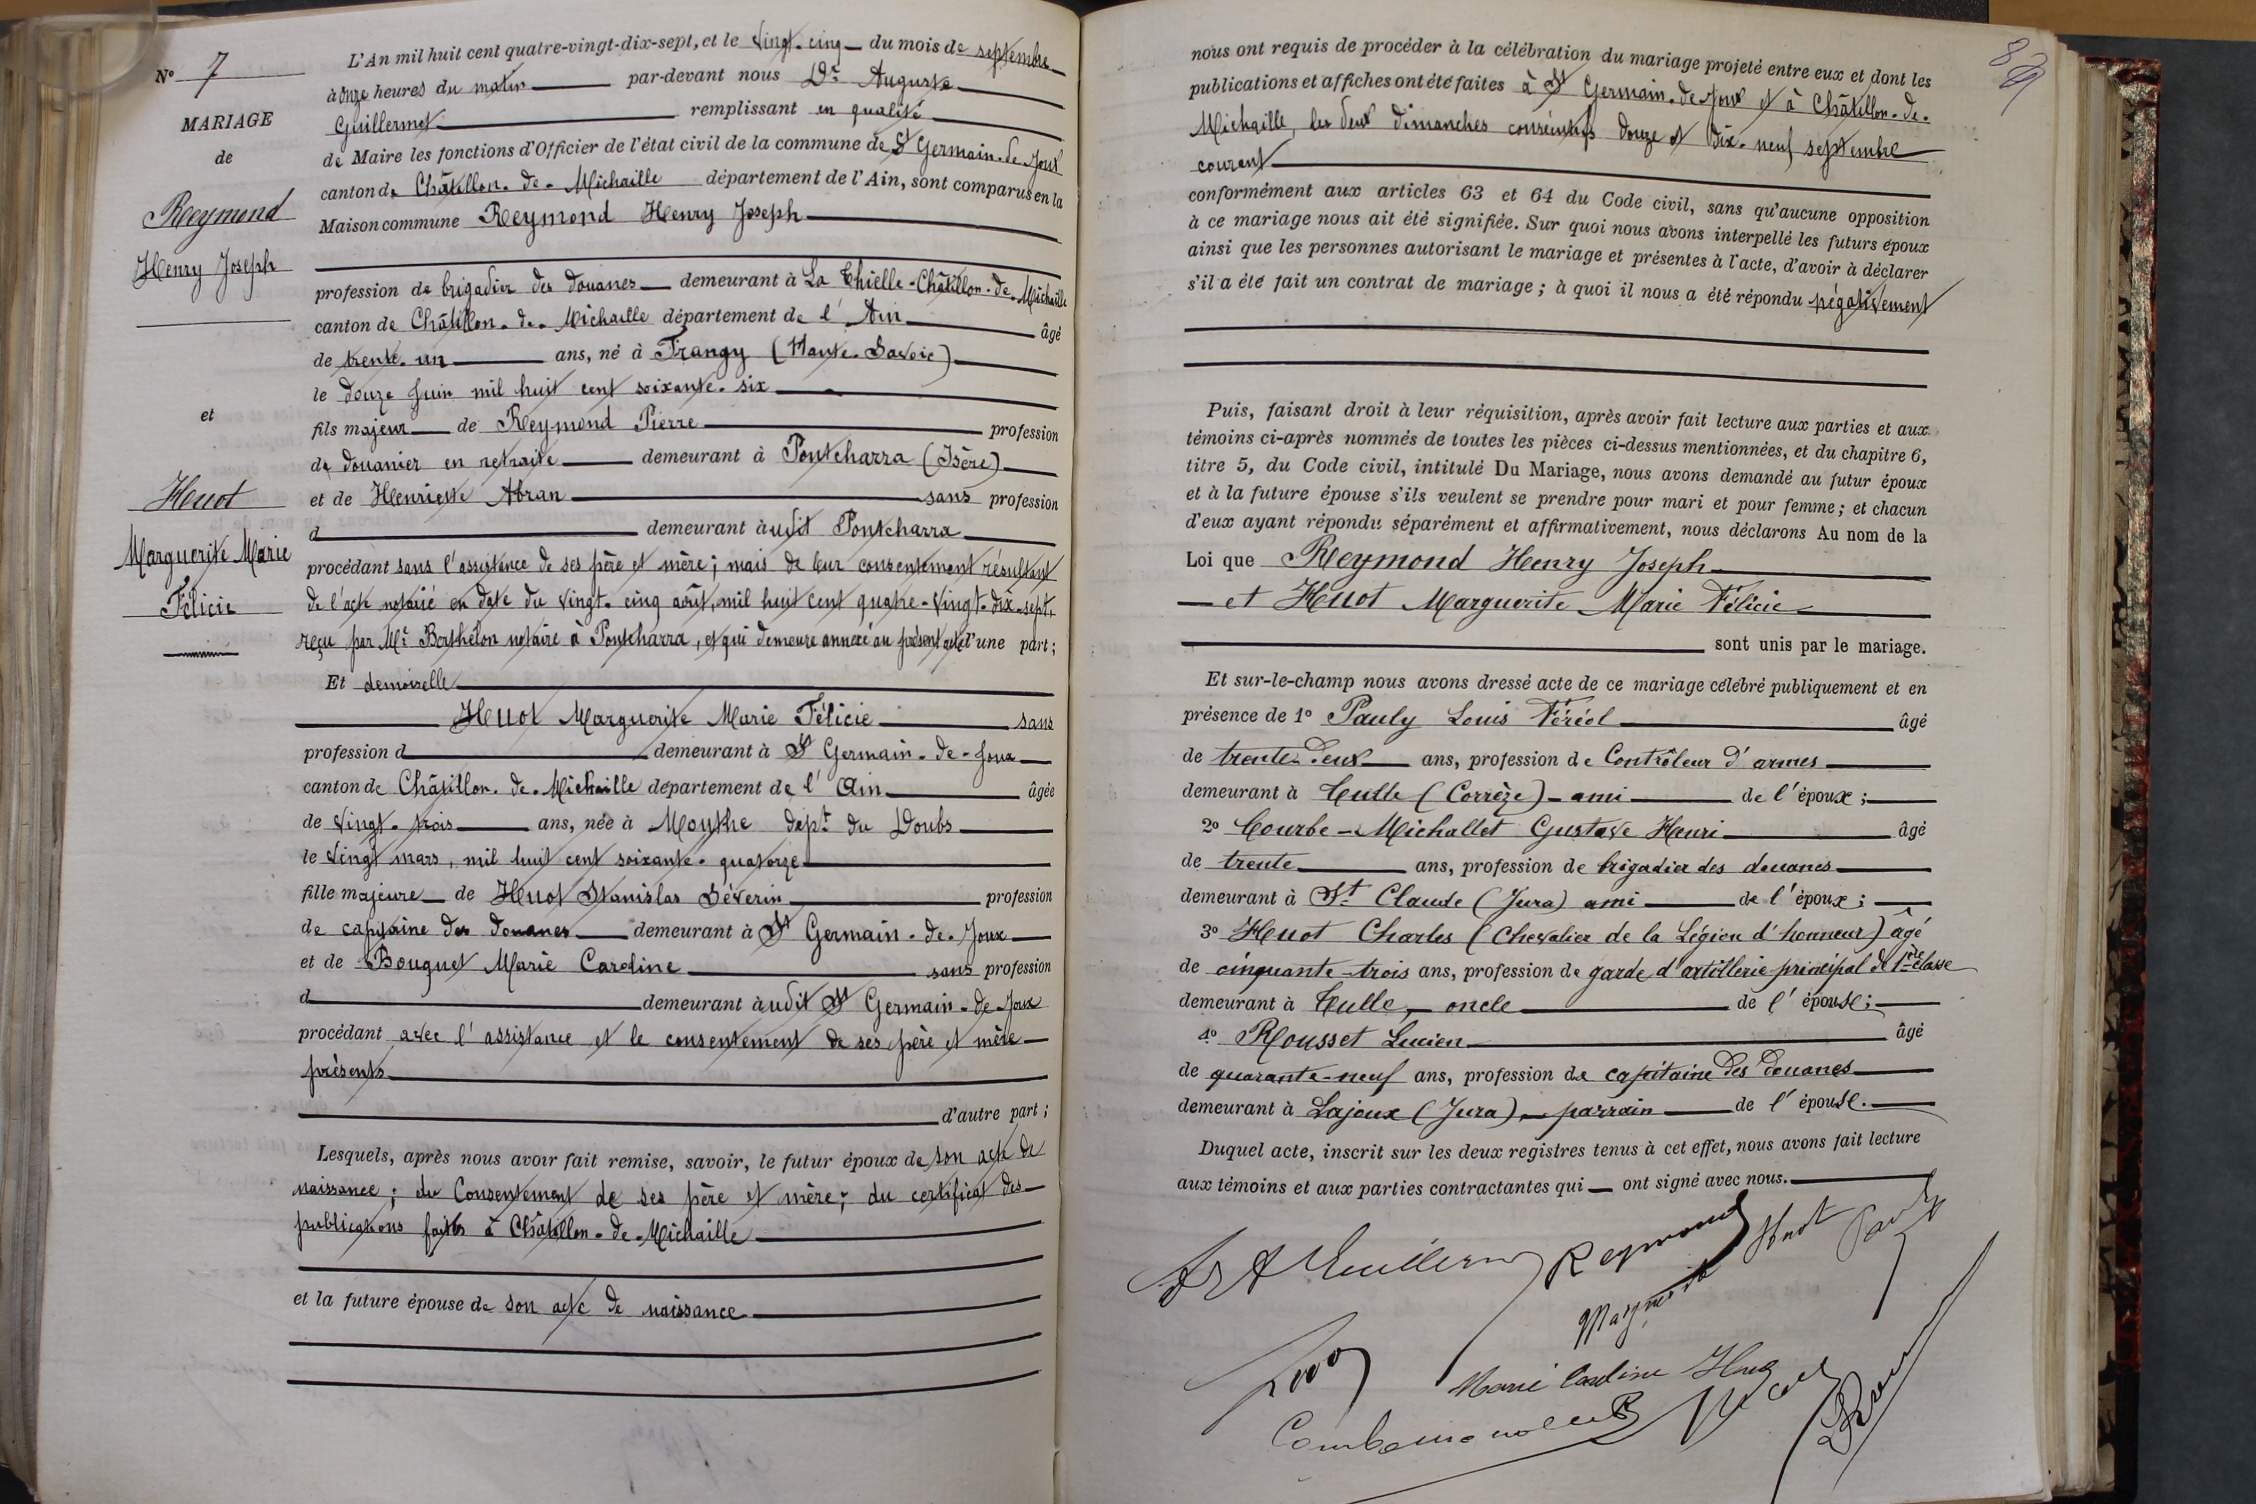 N° 7
MARIAGE
de
Reymond
Henry Joseph
et
Huot
Marguerite Marie
Félicie
L'An mil huit cent quatre-vingt-dix-sept, et le vingt-cinq du mois de septembre
à onze heures du matin par-devant nous Dr Auguste
Guillermet remplissant en qualité
de Maire les fonctions d'Officier de l'état civil de la commune de St Germain-de-Joux
canton de Châtillon-de-Michaille département de l'Ain, sont comparus en la
Maison commune Reymond Henry Joseph
profession de brigadier des douanes demeurant à La Chielle-Châtillon-de-Michaille
canton de Châtillon-de-Michaille département de l'Ain âgé
de trente-un ans, né à Frangy (Haute-Savoie)
le douze juin mil huit cent soixante-six
fils majeur de Reymond Pierre profession
de douanier en retraite demeurant à Pontcharra (Isère)
et de Henriette Abran sans profession
d demeurant à udit Pontcharra
procédant sans l'assistance de ses père et mère; mais de leur consentement résultant
de l'acte notarié en date du vingt-cinq août, mil huit cent quatre-vingt-dix-sept,
reçu par Me Berthelon notaire à Pontcharra, et qui demeure annexé au présent acte d'une part;
Et demoiselle
Huot Marguerite Marie Félicie sans
profession d demeurant à St Germain-de-Joux
canton de Châtillon-de-Michaille département de l'Ain âgée
de vingt-trois ans, née à Mouthe dept du Doubs
le vingt mars, mil huit cent soixante-quatorze
fille majeure de Huot Stanislas Séverin profession
de capitaine des douanes demeurant à St Germain-de-Joux
et de Bouquet Marie Caroline sans profession
d demeurant à udit St Germain-de-Joux
procédant avec l'assistance et le consentement de ses père et mère
présents
d'autre part;
Lesquels, après nous avoir fait remise, savoir, le futur époux de son acte de
naissance; du consentement de ses père et mère; du certificat des
publications faites à Châtillon-de-Michaille
et la future épouse de son acte de naissance
nous ont requis de procéder à la célébration du mariage projeté entre eux et dont les
publications et affiches ont été faites à St Germain-de-Joux et à Châtillon-de-
Michaille, les deux dimanches consécutifs douze et dix-neuf septembre
courant
conformément aux articles 63 et 64 du Code civil, sans qu'aucune opposition
à ce mariage nous ait été signifiée. Sur quoi nous avons interpellé les futurs époux
ainsi que les personnes autorisant le mariage et présentes à l'acte, d'avoir à déclarer
s'il a été fait un contrat de mariage; à quoi il nous a été répondu négativement
Puis, faisant droit à leur réquisition, après avoir fait lecture aux parties et aux
témoins ci-après nommés de toutes les pièces ci-dessus mentionnées, et du chapitre 6,
titre 5, du Code civil, intitulé Du Mariage, nous avons demandé au futur époux
et à la future épouse s'ils veulent se prendre pour mari et pour femme; et chacun
d'eux ayant répondu séparément et affirmativement, nous déclarons Au nom de la
Loi que Reymond Henry Joseph
et Huot Marguerite Marie Félicie
sont unis par le mariage.
Et sur-le-champ nous avons dressé acte de ce mariage célébré publiquement et en
présence de 1° Pauly Louis Féréol âgé
de trente-deux ans, profession de Contrôleur d'armes
demeurant à Tulle (Corrèze) - ami de l'époux;
2° Courbe-Michollet Gustave Henri âgé
de trente ans, profession de brigadier des douanes
demeurant à St Claude (Jura) ami de l'époux;
3° Huot Charles (Chevalier de la Légion d'honneur) âgé
de cinquante-trois ans, profession de garde d'artillerie principal de 1ère classe
demeurant à Tulle, oncle de l'épouse;
4° Rousset Lucien âgé
de quarante-neuf ans, profession de capitaine des douanes
demeurant à Lajoux (Jura), parrain de l'épouse.
Duquel acte, inscrit sur les deux registres tenus à cet effet, nous avons fait lecture
aux témoins et aux parties contractantes qui ont signé avec nous.
Dr A Guillermet Reymond Huot Pauly
Marguerite
Marie Caroline Huot